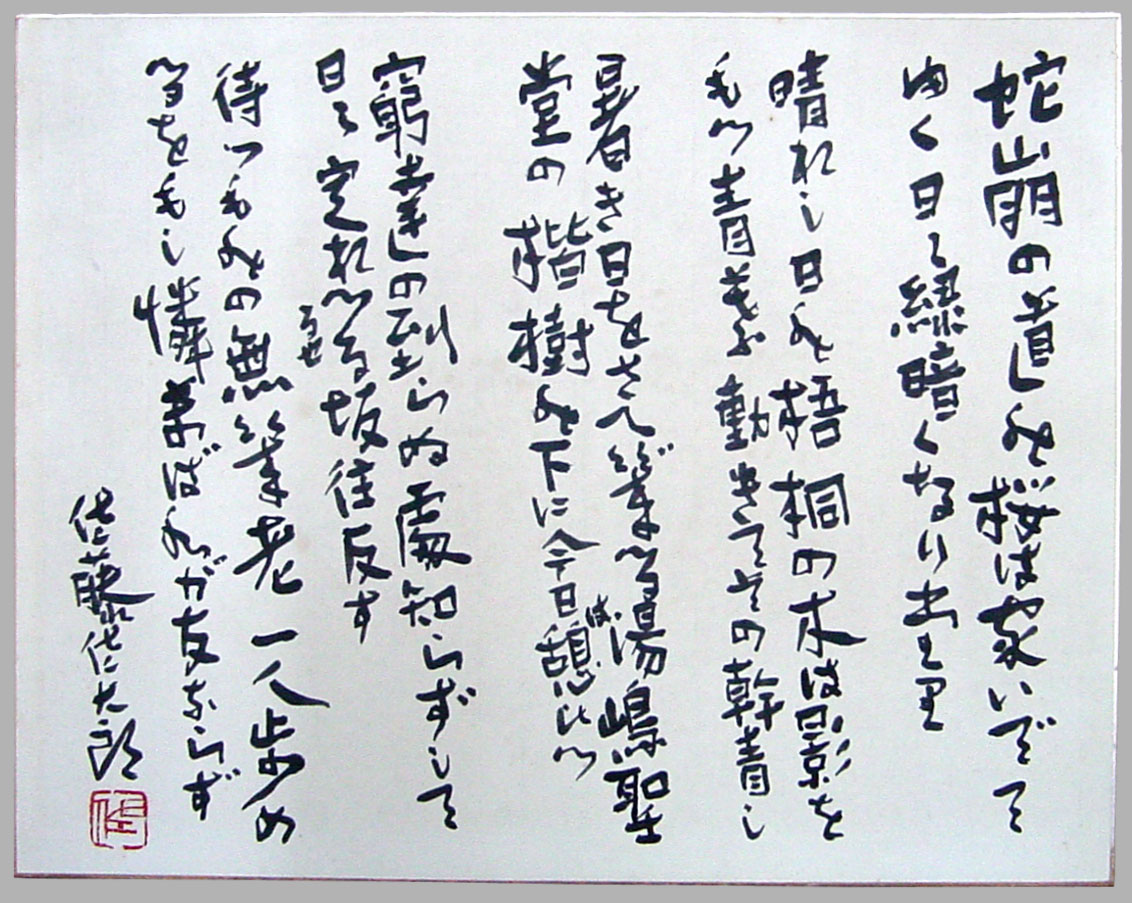 蛇崩の道の桜は家いでて
ゆく日々緑暗くなり
晴れし日の梧桐の木は影を
もつ青葉動きてその幹青し
暑き日をさへぎ湯嶋聖
堂の楷樹の下に今日は憩ひつ
窮達の到らぬ處知らずして
日々定れる坂往反す
待つものの無き老一人歩め
るをもし憐まばわが友ならず
佐藤佐太郎
佐